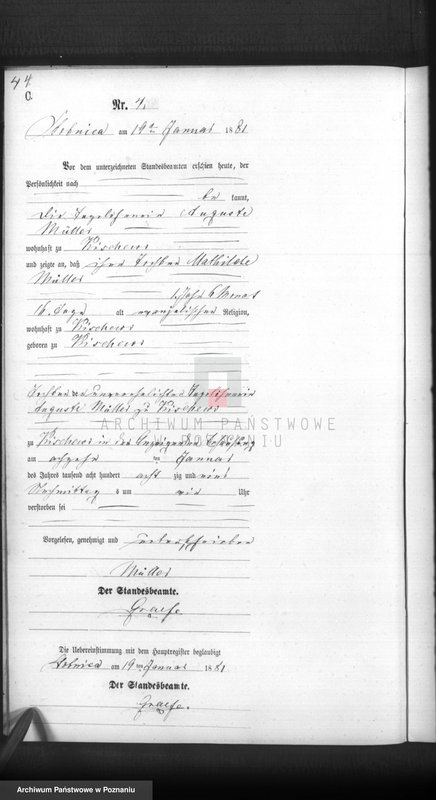 44.
C.
Nr. 4.
am 19ten Januar 1881
Vor dem unterzeichneten Standesbeamten erschien heute, der
Persönlichkeit nach
be kannt,
die Auguste
Müller
wohnhaft zu
und zeigte an, daß ihre Tochter Mathilde
Müller
1 Jahr 6 Monat
16 Tage alt evangelischer Religion,
wohnhaft zu
geboren zu
Tochter der unverehelichten
Auguste Müller zu
ARCHIWUM PAŃSTWOWE
W POZNANIU
zu in der
am achtzehn ten Januar
des Jahres tausend acht hundert acht zig und eins
Nachmittag s um vier Uhr
verstorben sei
Vorgelesen, genehmigt und unterschrieben
Müller
Der Standesbeamte.
Graefe
Die Uebereinstimmung mit dem Hauptregister beglaubigt
am 19ten Januar 1881
Der Standesbeamte.
Graefe.
Archiwum Państwowe w Poznaniu